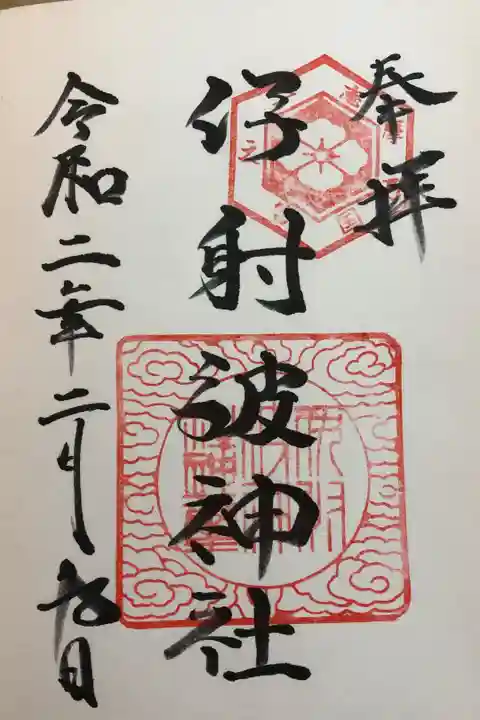 奉拝
伊射波神社
令和二年二月九日